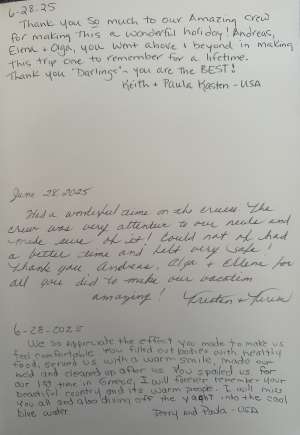 6-28-25
Thank you so much to our Amazing crew
for making this a wonderful holiday! Andreas,
Elena + Olga, you went above & beyond in making
this trip one to remember for a lifetime.
Thank you "Darlings" - you are the BEST!
Keith + Paula Kasten - USA
June 28, 2025
Had a wonderful time on the cruise. The
crew was very attentive to our needs and
made sure of it! Could not of had
a better time and felt very safe!
Thank you Andreas, Olga & Ellene for
all you did to make our vacation
amazing! Kristen &
6-28-2025
We so appreciate the effort you made to make us
feel comfortable. You filled our bodies with healthy
food, served us with a warm smile, made our
bed and cleaned up after us. You spoiled us for
our 1st time in Greece. I will forever remember your
beautiful country and its warm people. I will miss
you all and also diving off the yaght into the cool
blue water.
and Paula - USA